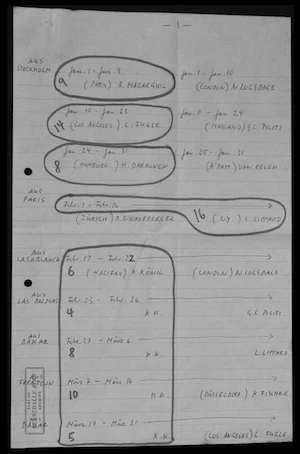 — 1 —
AUS STOCKHOLM
Jan. 1 - Jan. 9
Jan. 1 - Jan. 10
9 (PARIS)
(LONDON) N. LOGSDALE
Jan 10 - Jan. 23
Jan. 11 - Jan. 24
14 (LOS ANGELES) L. FUGLE
(MAILAND) G.C. POLITI
Jan. 24 - Jan. 31
Jan. 25 - Jan. 31
8 (HAMBURG) H. DARBOVEN
(A'DAM) VAN EELEN
AUS PARIS
Febr. 1 - Febr. 16
(ZÜRICH) B. BISCHOFBERGER
16 (N.Y.) L. LIPPARD
AUS CASABLANCA
Febr. 17 - Febr. 22
6 (HALIFAX) K. KÖNIG
(LONDON) N. LOGSDALE
AUS LAS PALMAS
Febr. 23 - Febr. 26
4 K.K.
G.C. POLITI
AUS DAKAR
Febr. 27 - März 6
8 K.K.
L. LIPPARD
AUS FREETOWN
März 7 - März 16
10 K.K.
(DÜSSELDORF) K. FISCHER
AUS DAKAR
März 17 - März 21
5 K.K.
(LOS ANGELES) L. FUGLE